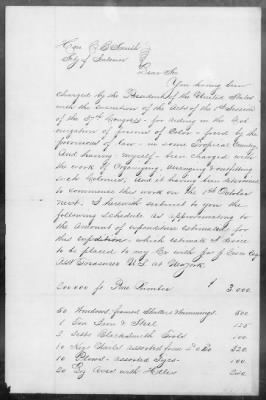 Hon C. B. Smith
Secy of Interior
Dear Sir
You having been
charged by the President of the United States
with the execution of the Acts of the 1st Session
of the 37th Congress - for aiding in the
emigration of persons of Color - freed by the
provisions of law - in some Tropical Country
And having myself - been charged with
the work of Organizing, arranging & outfitting
such Colonies, And it having been determined
to commence this work on the 1st October
next. I herewith submit to you the
following schedule as approximating to
the Amount of expenditure estimated for
this expedition, which estimate I
to be placed to my Cr with Jno J Cisco Esq
Asst Treasurer U.S. at NewYork
200.000 ft Pine Lumber $ 3.000.
50 Windows frames Shutters & trimmings. 500.
1 Ton Iron & Steel 125
2 Setts Blacksmith Tools 100
10 Keg Nails assorted from 520
10 Plows - assorted Sizes - 100.
20 Axes with Helves